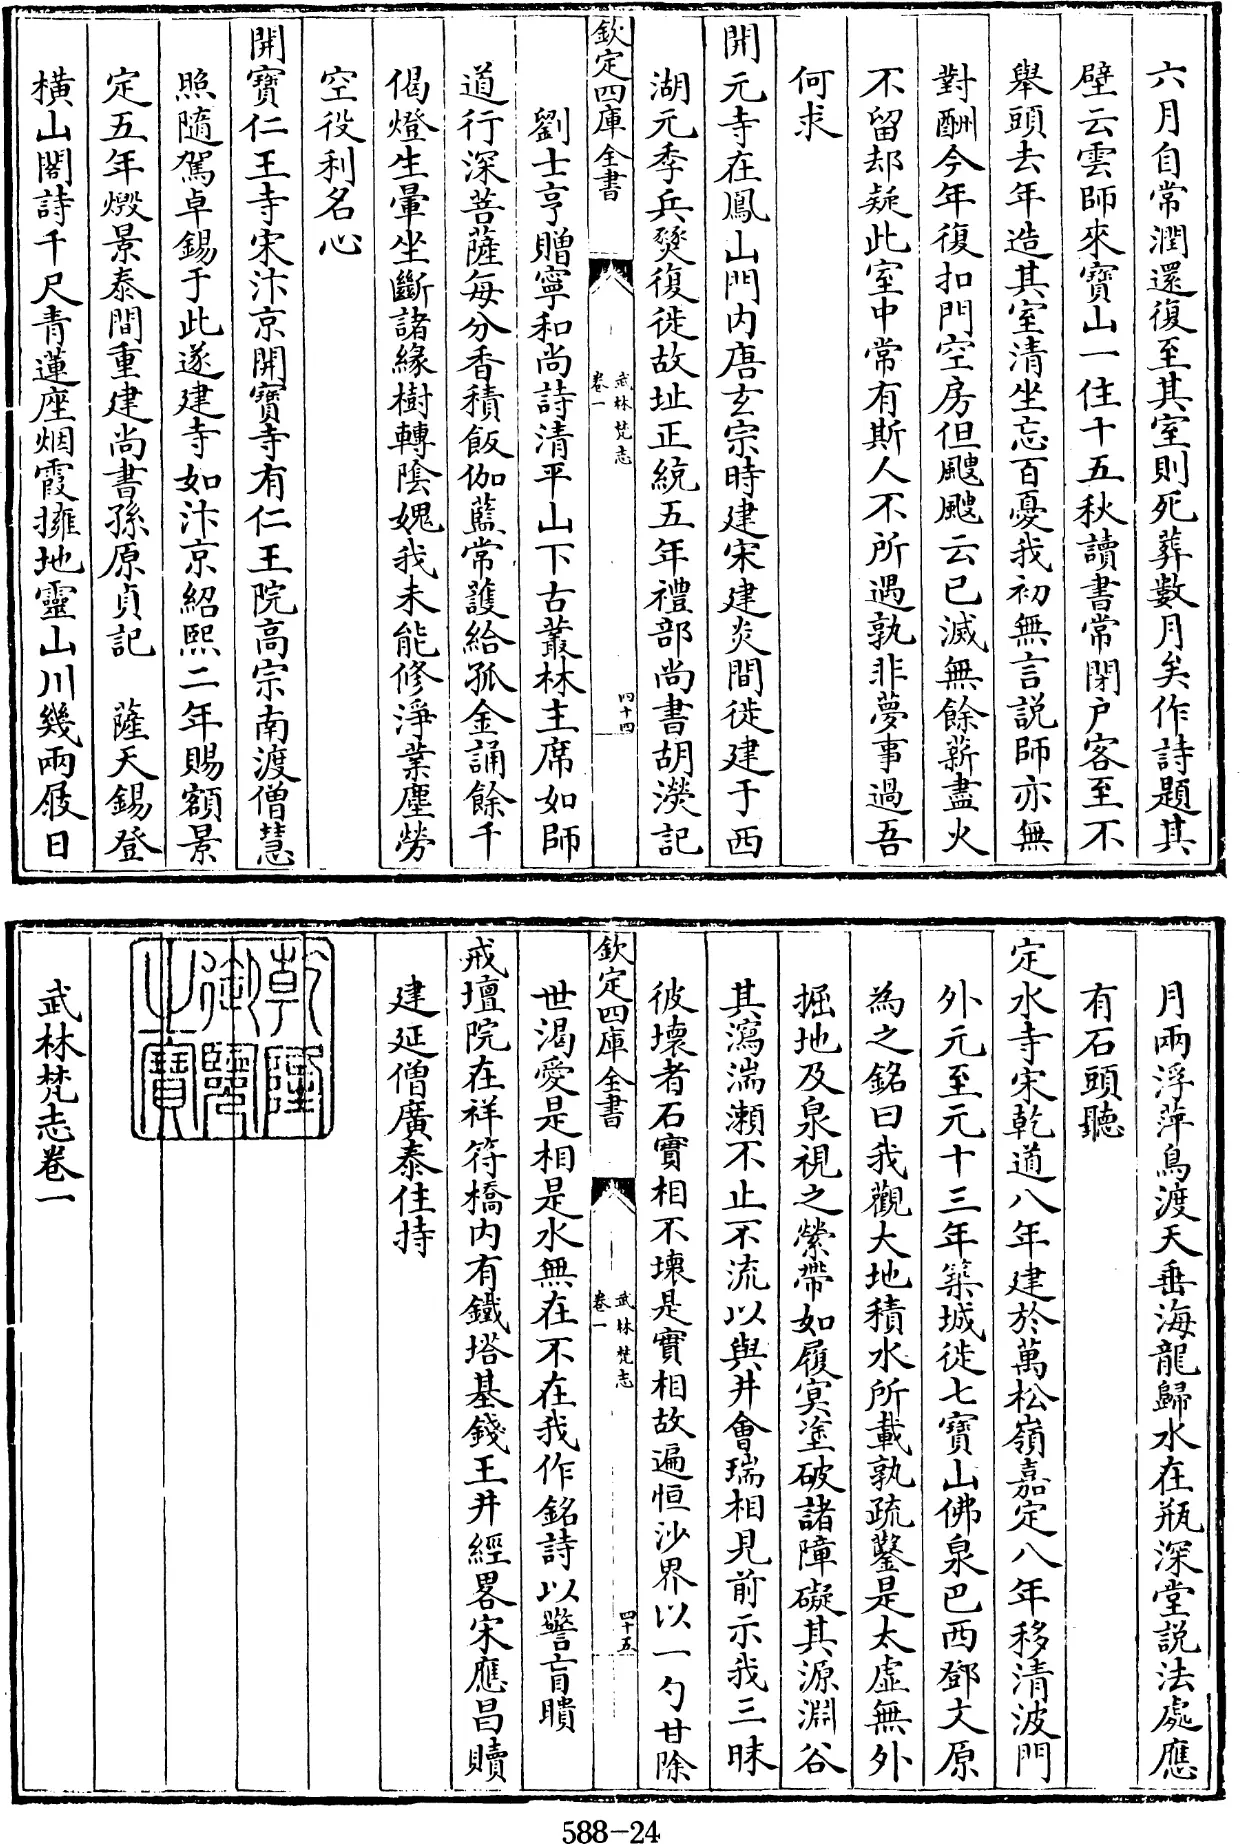 六月自常潤還復至其室則死葬數月矣作詩題其
壁云雲師來寶山一住十五秋讀書常閉户客至不
舉頭去年造其室清坐忘百憂我初無言説師亦無
對酬今年復扣門空房但颼颼云已滅無餘薪盡火
不留却疑此室中常有斯人不所遇孰非夢事過吾
何求
開元寺在鳳山門内唐玄宗時建宋建炎間徙建于西
湖元季兵燹復徙故址正統五年禮部尚書胡濙記
欽定四庫全書
武林梵志
卷一
四十四
劉士亨贈寧和尚詩清平山下古叢林主席如師
道行深菩薩每分香積飯伽藍常護給孤金誦餘千
偈燈生暈坐斷諸緣樹轉陰媿我未能修淨業塵勞
空役利名心
開寶仁王寺宋汴京開寶寺有仁王院高宗南渡僧慧
照隨駕卓錫于此遂建寺如汴京紹熙二年賜額景
定五年燬景泰間重建尚書孫原貞記　薩天錫登
横山閣詩千尺青蓮座烟霞擁地靈山川幾兩屐日
月兩浮萍鳥渡天垂海龍歸水在瓶深堂説法處應
有石頭聽
定水寺宋乾道八年建於萬松嶺嘉定八年移清波門
外元至元十三年築城徙七寶山佛泉巴西鄧文原
為之銘曰我觀大地積水所載孰疏鑿是太虛無外
掘地及泉視之縈帶如履寞塗破諸障礙其源淵谷
其瀉湍瀨不止不流以與井會瑞相見前示我三昧
彼壊者石實相不壊是實相故遍恒沙界以一勺甘除
欽定四庫全書
武林梵志
卷一
四十五
世渴愛是相是水無在不在我作銘詩以警盲瞶
戒壇院在祥符橋内有鐵塔基錢王井經畧宋應昌贖
建延僧廣泰住持
乾隆
御覽
之寶
武林梵志卷一
588-24